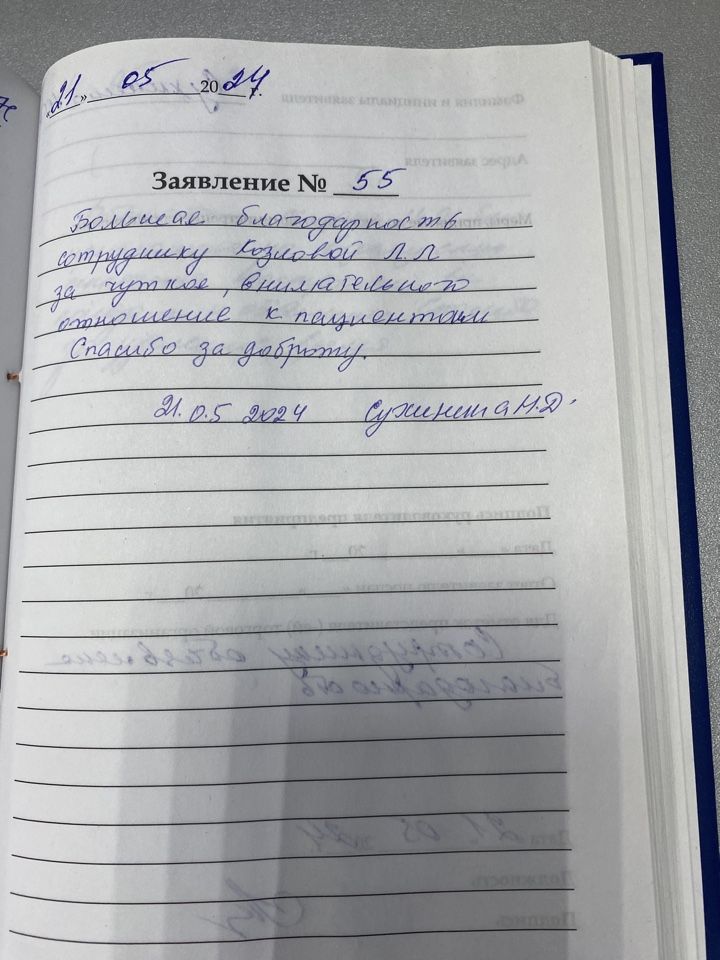 «21» 05 2024 г.
Заявление № 55
Большая благодарность
сотруднику Козловой Л.Л
за чуткое, внимательного
отношение к пациентам
Спасибо за доброту.
21.0.5 2024 Сухинина Н.Д.